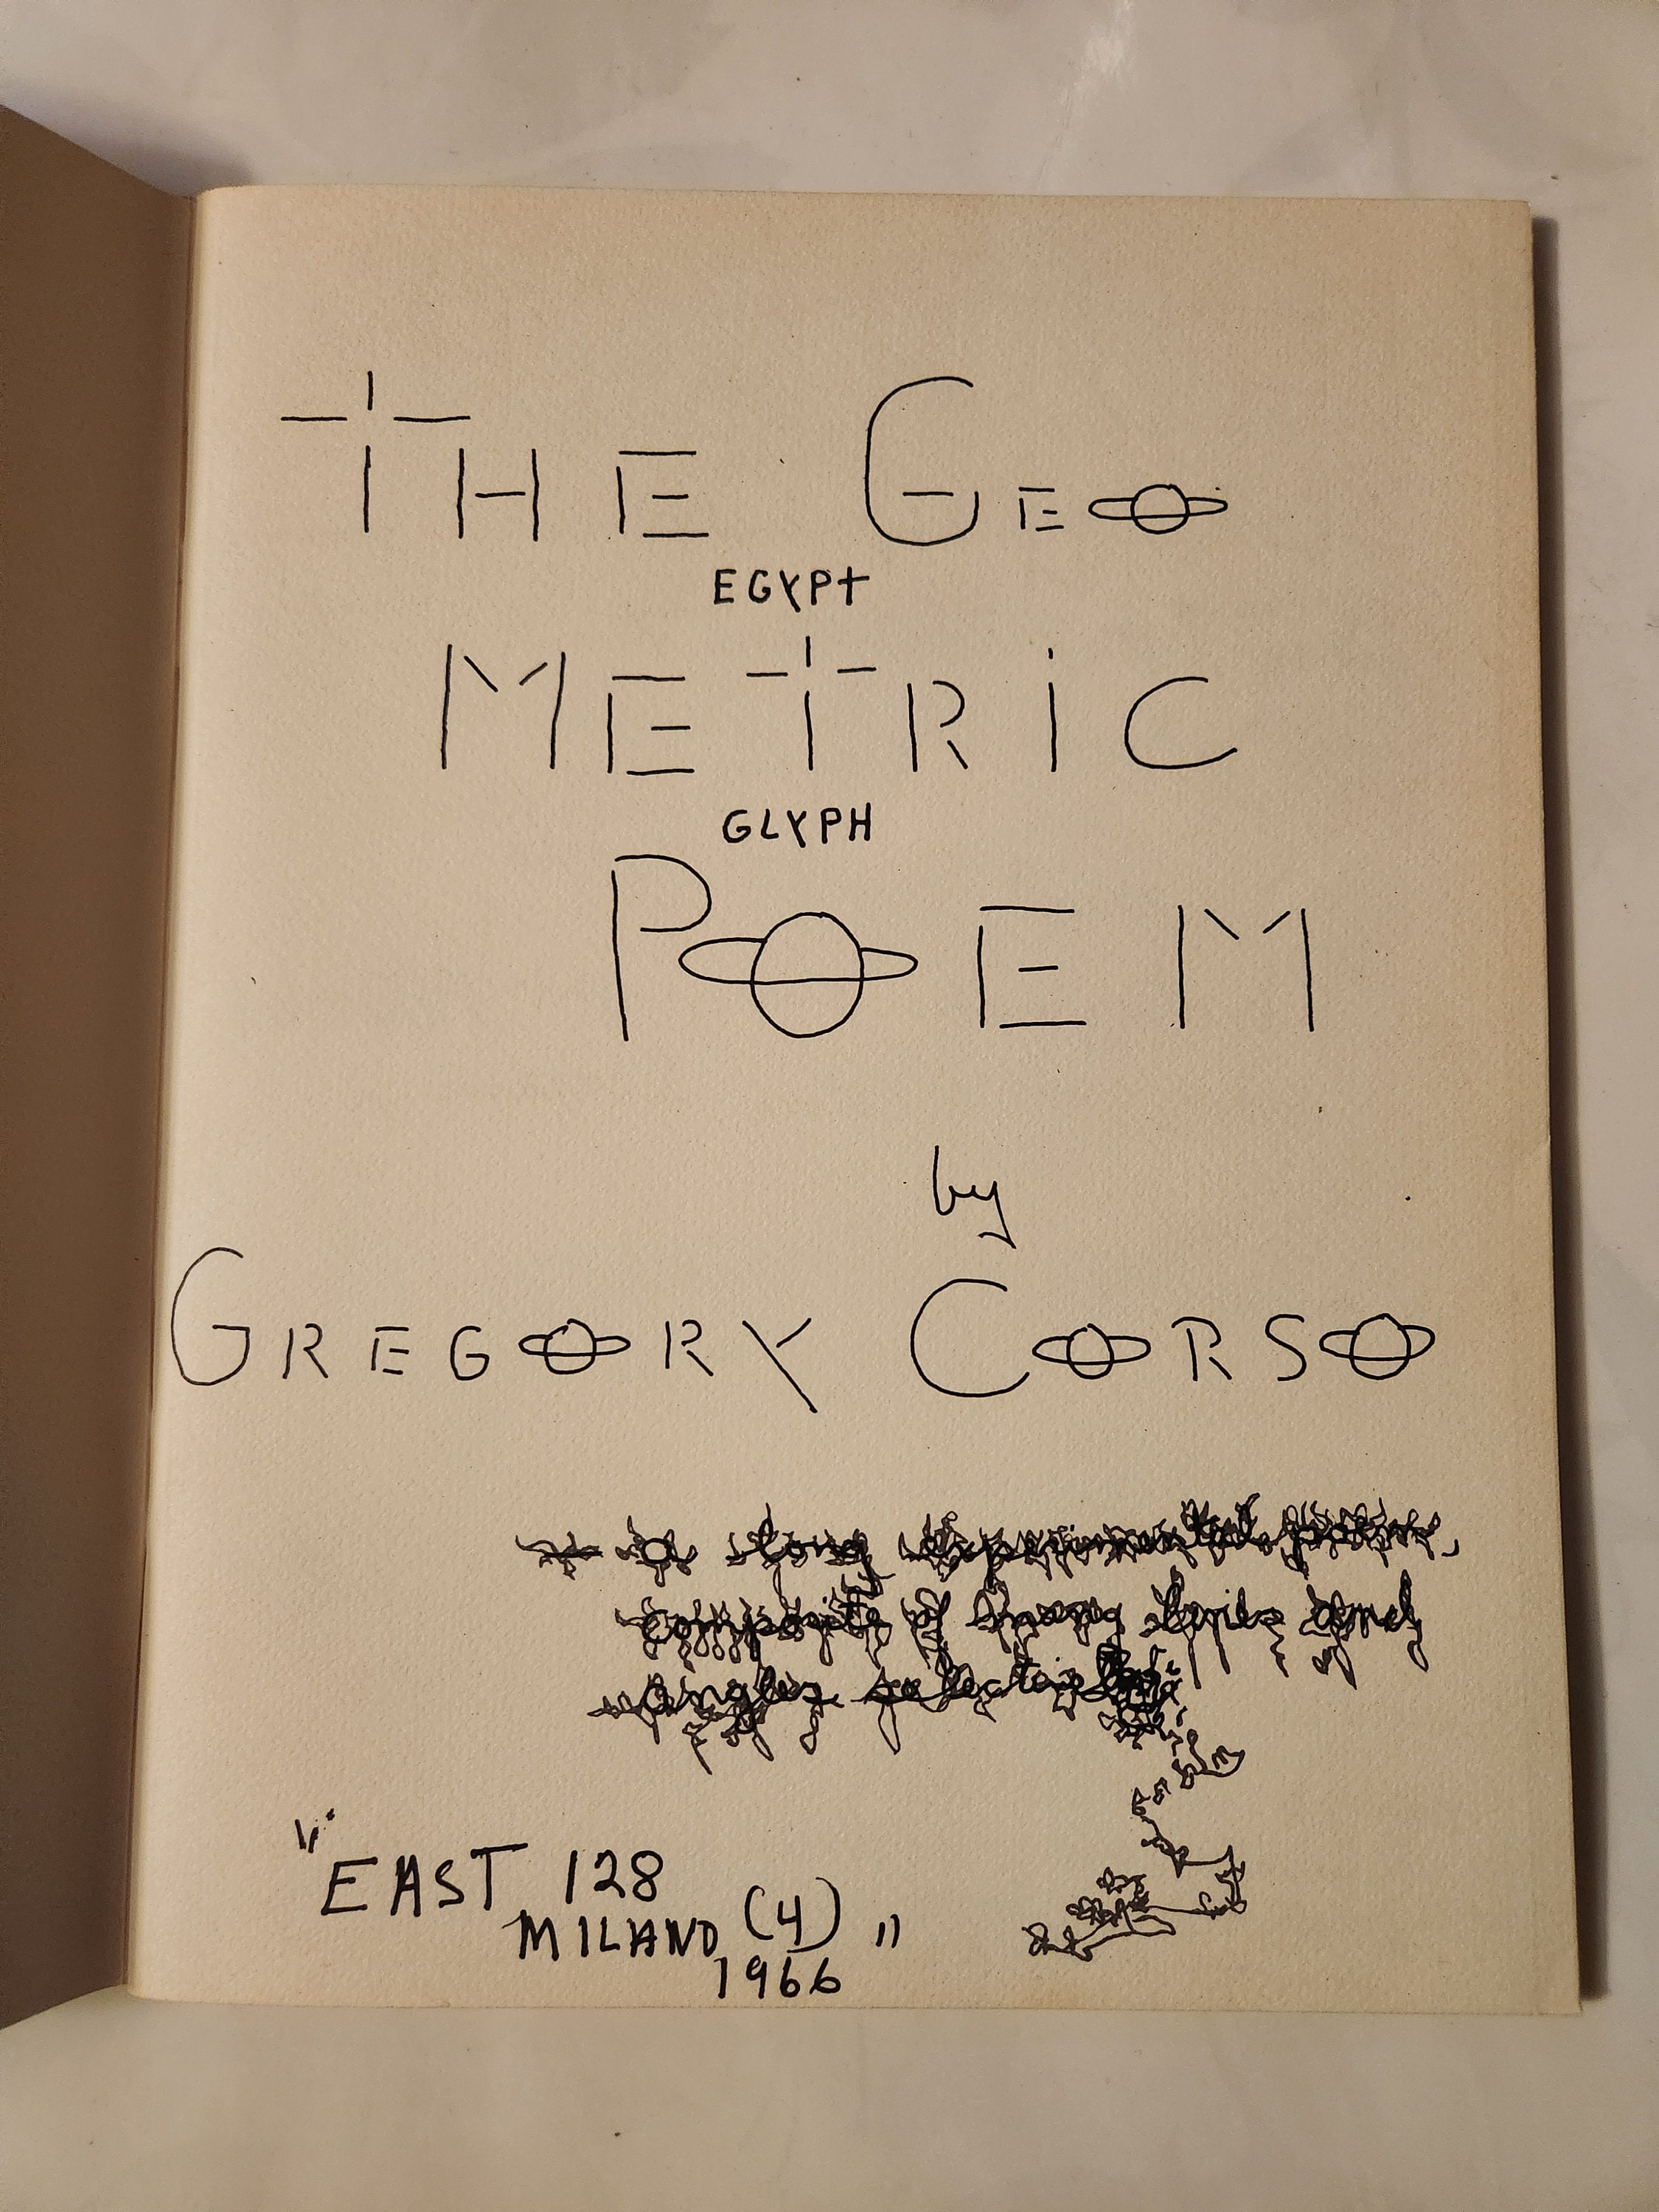 THE GEO
EGYPT
METRiC
GLYPH
POEM
by
GREGORY CORSO
a long experimental poem,
composite of many lyric and
"EAST 128
MILANO (4)"
1966